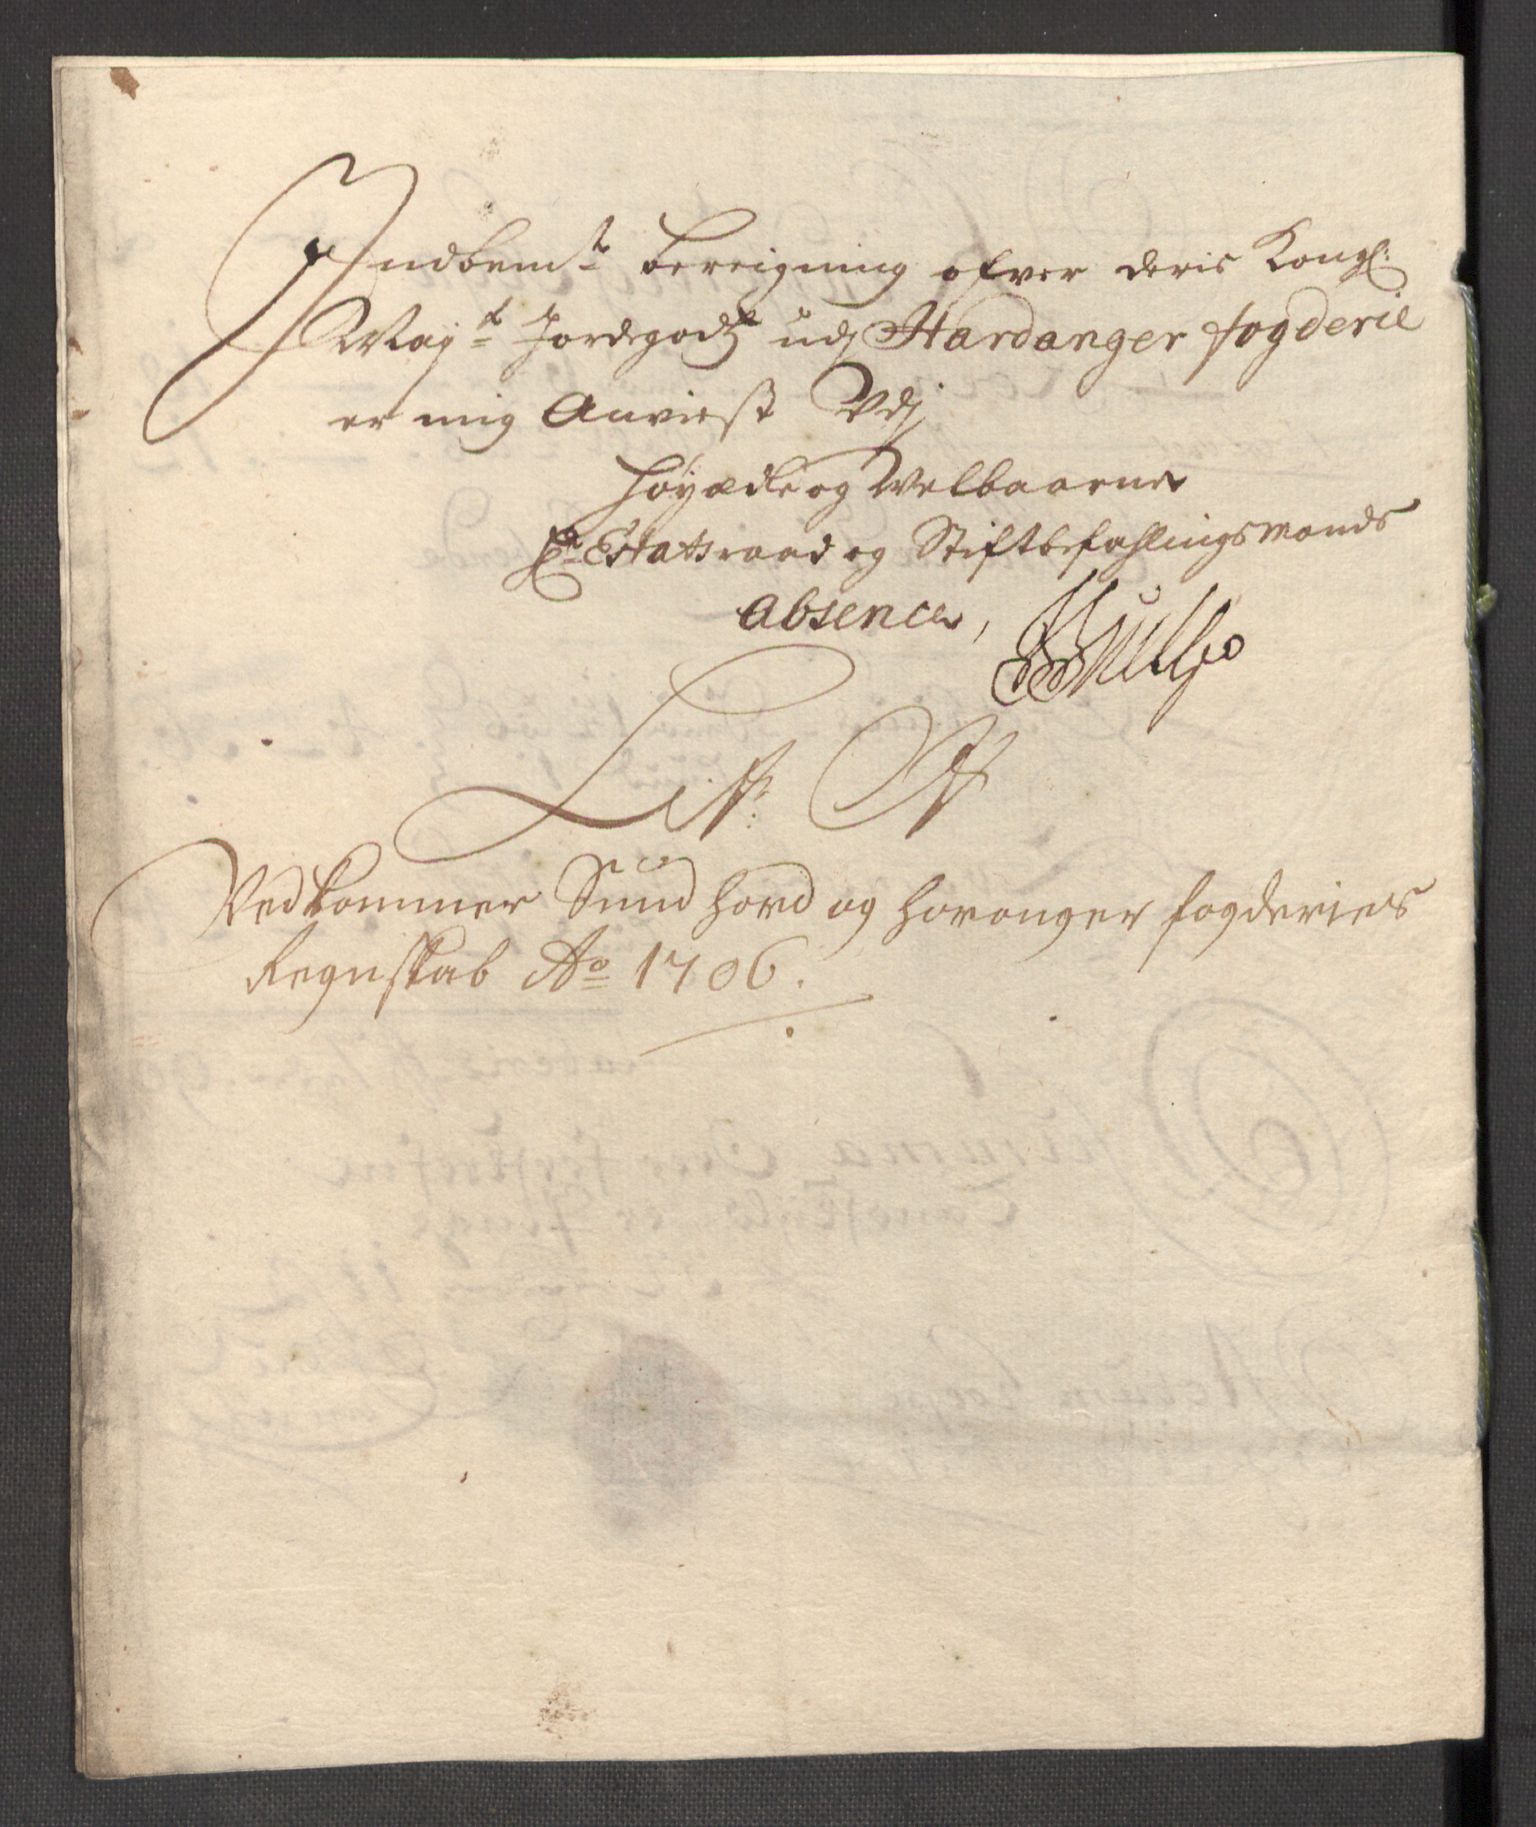 Indbem.te bereigning ofver deris Kongl:
May.ts Jordegodtz udj Hardanger fogderie
er mig Anviest Udj
Høyædle og Welbaarne
Hr. Estatsraad og Stiftbefahlingsmands
absence,
Lit:
Vedkommer Sundhord og Haranger fogderies
Regnskab Ao 1706.